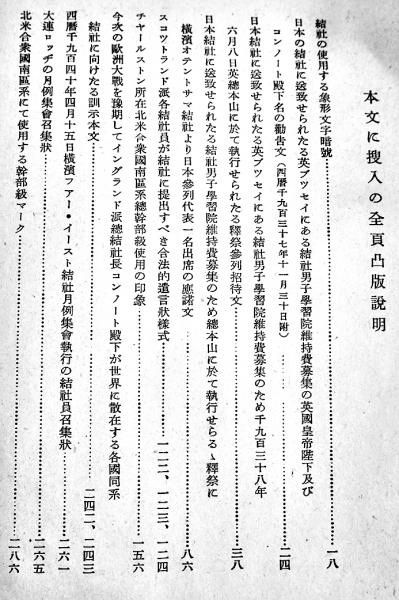 本文に捜入の全頁凸版説明
結社の使用する象形文字暗號……………一八
日本の結社に送致せられたる英ブツセイにある結社男子學習院維持費募集の英國皇帝陛下及び
コンノート殿下名の勸告文(西曆千九百三十七年十一月三十日附)……………二四
日本結社に送致せられたる英ブツセイにある結社男子學習院維持費募集のため千九百三十八年
六月八日英總本山に於て執行せられたる釋祭參列招待文……………三八
日本結社に送致せられたる結社男子學習院維持費募集のため總本山に於て執行せらるゝ釋祭に
橫濱オテントサマ結社より日本參列代表一名出席の應諾文……………八六
スコツトランド派各結社員が結社に提出すべき合法的遺言狀樣式……………一二二、一二三、一二四
チャールストン所在北米合衆國南區系總幹部級使用の印象……………一五六
今次の歐洲大戰を豫期してイングランド派總結社長コンノート殿下が世界に散在する各國同系
結社に向けたる訓示本文……………二四二、二四三
西曆千九百四十年四月十五日橫濱フアー・イースト結社月例集會執行の結社員召集狀……………二六一
大連ロッヂの月例集會召集狀……………二六五
北米合衆國南區系にて使用する幹部級マーク……………二八六